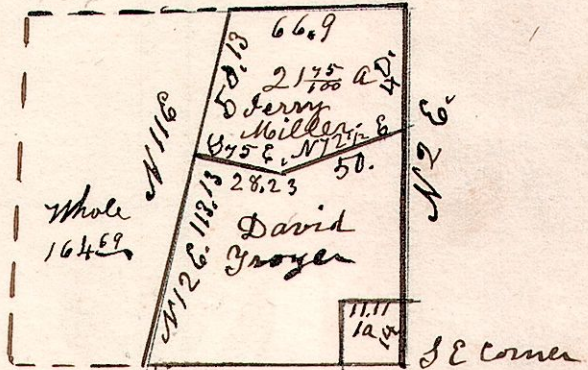 66.9
50.13
21 75/100 a
40.
Jerry
Miller
S75E. N72 1/2 E
28.23
50.
N11E
N2E.
Whole
164 69
N12E. 113.13
David
Troyer
11.11
1a
S E Corner